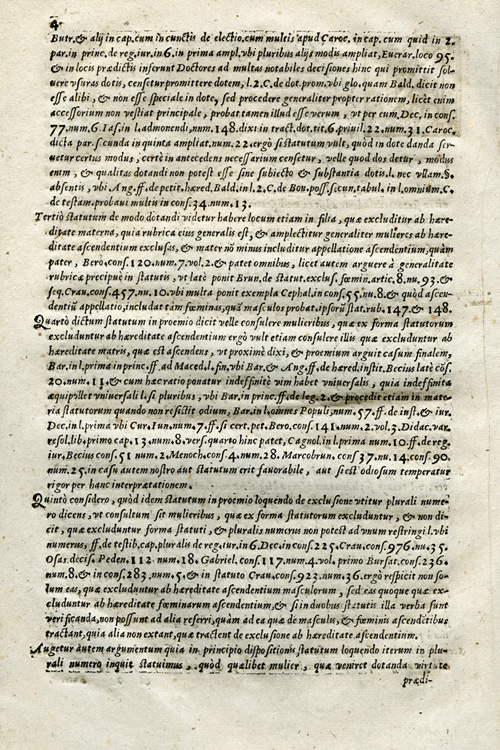 4
Butr. & alij in cap. cum in cunctis de electio. cum multis apud Caroc. in cap. cum quid in 2.
par. in princ. de reg. iur. in 6. in prima ampl. vbi pluribus alijs modis ampliat, Euerar. loco 95.
& in locis prædictis inferunt Doctores ad multas notabiles decisiones hinc qui promittit sol-
uere vsuras dotis, censetur promittere dotem, l. 2. C. de dot. prom. vbi glo. quam Bald. dicit non
esse alibi, & non esse speciale in dote, sed procedere propter rationem, licèt enim
accessorium non vestiat principale, probat tamen illud esse verum, vt per eum, Dec. in cons.
77. num. 6. Ias. in l. admonendi, num. 148. dixi in tract. dot. tit. 6. priuil. 22. num. 31. Caroc.
dicta par. secunda in quinta ampliat. num. 22. ergò si statutum vult, quòd in dote danda ser-
uetur certus modus, certè in antecedens necessarium censetur, velle quod dos detur, modus
enim, & qualitas dotandi non potest esse sine subiecto & substantia dotis. l. nec vllam. §.
absentis, vbi Ang. ff. de petit. hæred. Bald. in l. 2. C. de Bon. poss. secun. tabul. in l. omnium. C.
de testam. probaui multis in cons. 34. num. 13.
Tertiò statutum de modo dotandi videtur habere locum etiam in filia, quæ excluditur ab hæ-
redipate materna, quia rubrica eius generalis est, & amplectitur generaliter mulieres ab hære-
ditate ascendentium exclusas, & mater nō minus includitur appellatione ascendentium, quàm
pater, Berò. cons. 120. num. 7. vol. 2. & patet omnibus, licet autem arguere à generalitate
rubricæ præcipuè in statutis, vt latè ponit Brun. de statut. exclus. fœmin. artic. 8. nu. 93. &
seq. Crau. cons. 457. nu. 10. vbi multa ponit exempla Cephal. in cons. 55. nu. 8. & quòd ascen-
dentiū appellatio, includat tàm fœminas, quā masculos probat. ipsorū stat. rub. 147. & 148.
Quartò dictum statutum in proemio dicit velle consulere mulieribus, quæ ex forma statutorum
excluduntur ab hæreditate ascendentium ergò vult etiam consulere illis quæ excluduntur ab
hæreditate matris, quæ est ascendens, vt proximè dixi, & proemium arguit casum finalem,
Bar. in l. prima in princ. ff. ad Maced. l. fin. vbi Bar. & Ang. ff. de hæred. instit. Becius latè cōs.
20. num. 11. & cum hæc ratio ponatur indeffinitè vim habet vniuersalis, quia indeffinita
æquipollet vniuersali l. si pluribus, vbi Bar. in princ. ff. de leg. 2. & procedit etiam in mate-
ria statutorum quando non resistit odium, Bar. in l. omnes Populi, num. 57. ff. de iust. & iur.
Dec. in l. prima vbi Cur. Iun. num. 7. ff. si cert. pet. Bero. cons. 141. num. 2. vol. 3. Didac. var.
resol. lib. primo cap. 13. num. 8. vers. quarto hinc patet, Cagnol. in l. prima num. 10. ff. de reg.
iur. Becius cons. 51 num. 2. Menoch. cons. 4. num. 28. Marcobrun. cons. 37. nu. 14. cons. 90.
num. 25. in casu autem nostro aut statutum erit fauorabile, aut si est odiosum temperatur
rigor per hanc interpretationem.
Quintò considero, quòd idem statutum in proemio loquendo de exclusione vtitur plurali nume-
ro dicens, vt consultum sit mulieribus, quæ ex forma statutorum excluduntur, & non di-
cit, quæ excluduntur forma statuti, & pluralis numerus non potest ad vnum restringi. l. vbi
numerus, ff. de testib. cap. pluralis de reg. iur. in 6. Dec. in cons. 225. Crau. cons. 976. nu. 35.
Osas. decis. Peden. 112. num. 18. Gabriel. cons. 117. num. 4. vol. primo Bursat. cons. 236.
num. 8. & in cons. 283. num. 5. & in statuto Crau. cons. 923. num. 36. ergò respicit non so-
lum eas, quæ excluduntur ab hæreditate ascendentium masculorum, sed eas quoque quæ ex-
cluduntur ab hæreditate fœminarum ascendentium, & si in duobus statutis illa verba sunt
verificanda, non possunt ad alia referri, quàm ad ea quæ de masculis, & fœminis ascendētibus
tractant, quia alia non extant, quæ tractent de exclusione ab hæreditate ascendentium.
Augetur autem argumentum quia in principio dispositionis statutum loquendo iterum in plu-
rali numero inquit statuimus, quòd quælibet mulier, quæ veniret dotanda virtute
prædi-